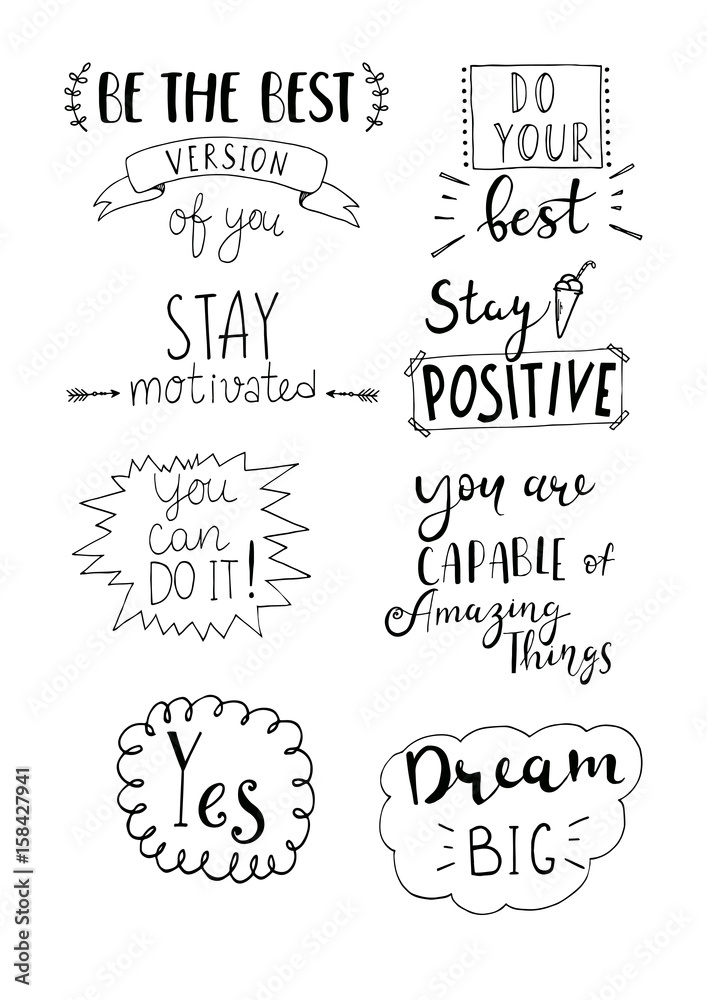 BE THE BEST
VERSION
of you
DO
YOUR
best
STAY
motivated
Stay
POSITIVE
you
can
DO IT!
you are
CAPABLE of
Amazing
Things
Yes
Dream
BIG
Adobe Stock | #158427941